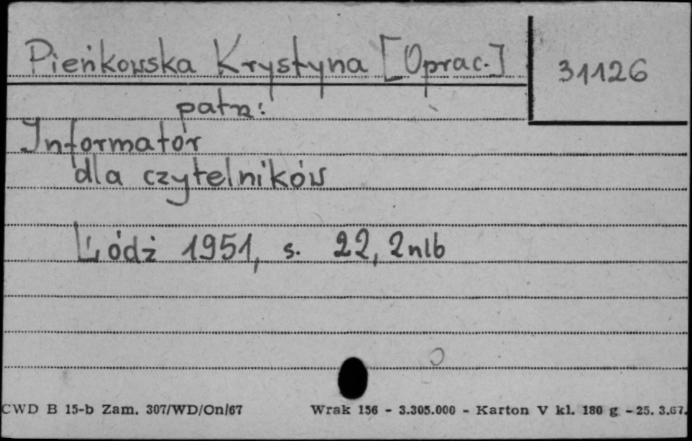 Pieńkowska Krystyna [Oprac.]
31126
patrz:
Informator
dla czytelników
Łódź 1951, s. 22, 2nlb
CWD B 15-b Zam. 307/WD/On/67 Wrak 156 - 3.305.000 - Karton V kl. 180 g - 25. 3.67.